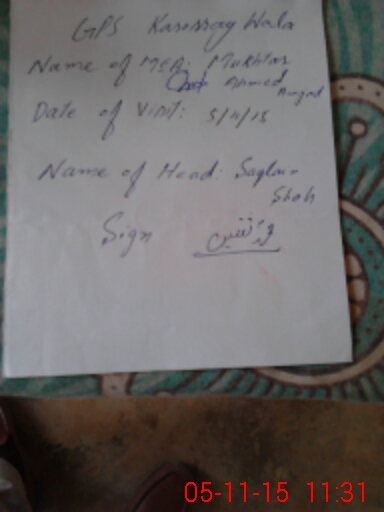 GPS Karorray Wala
Name of MEA: Mukhtar
Ahmed
Amjad
Date of Visit: 5/11/15
Name of Head: Saqlain
Shah
Sign
05-11-15 11:31